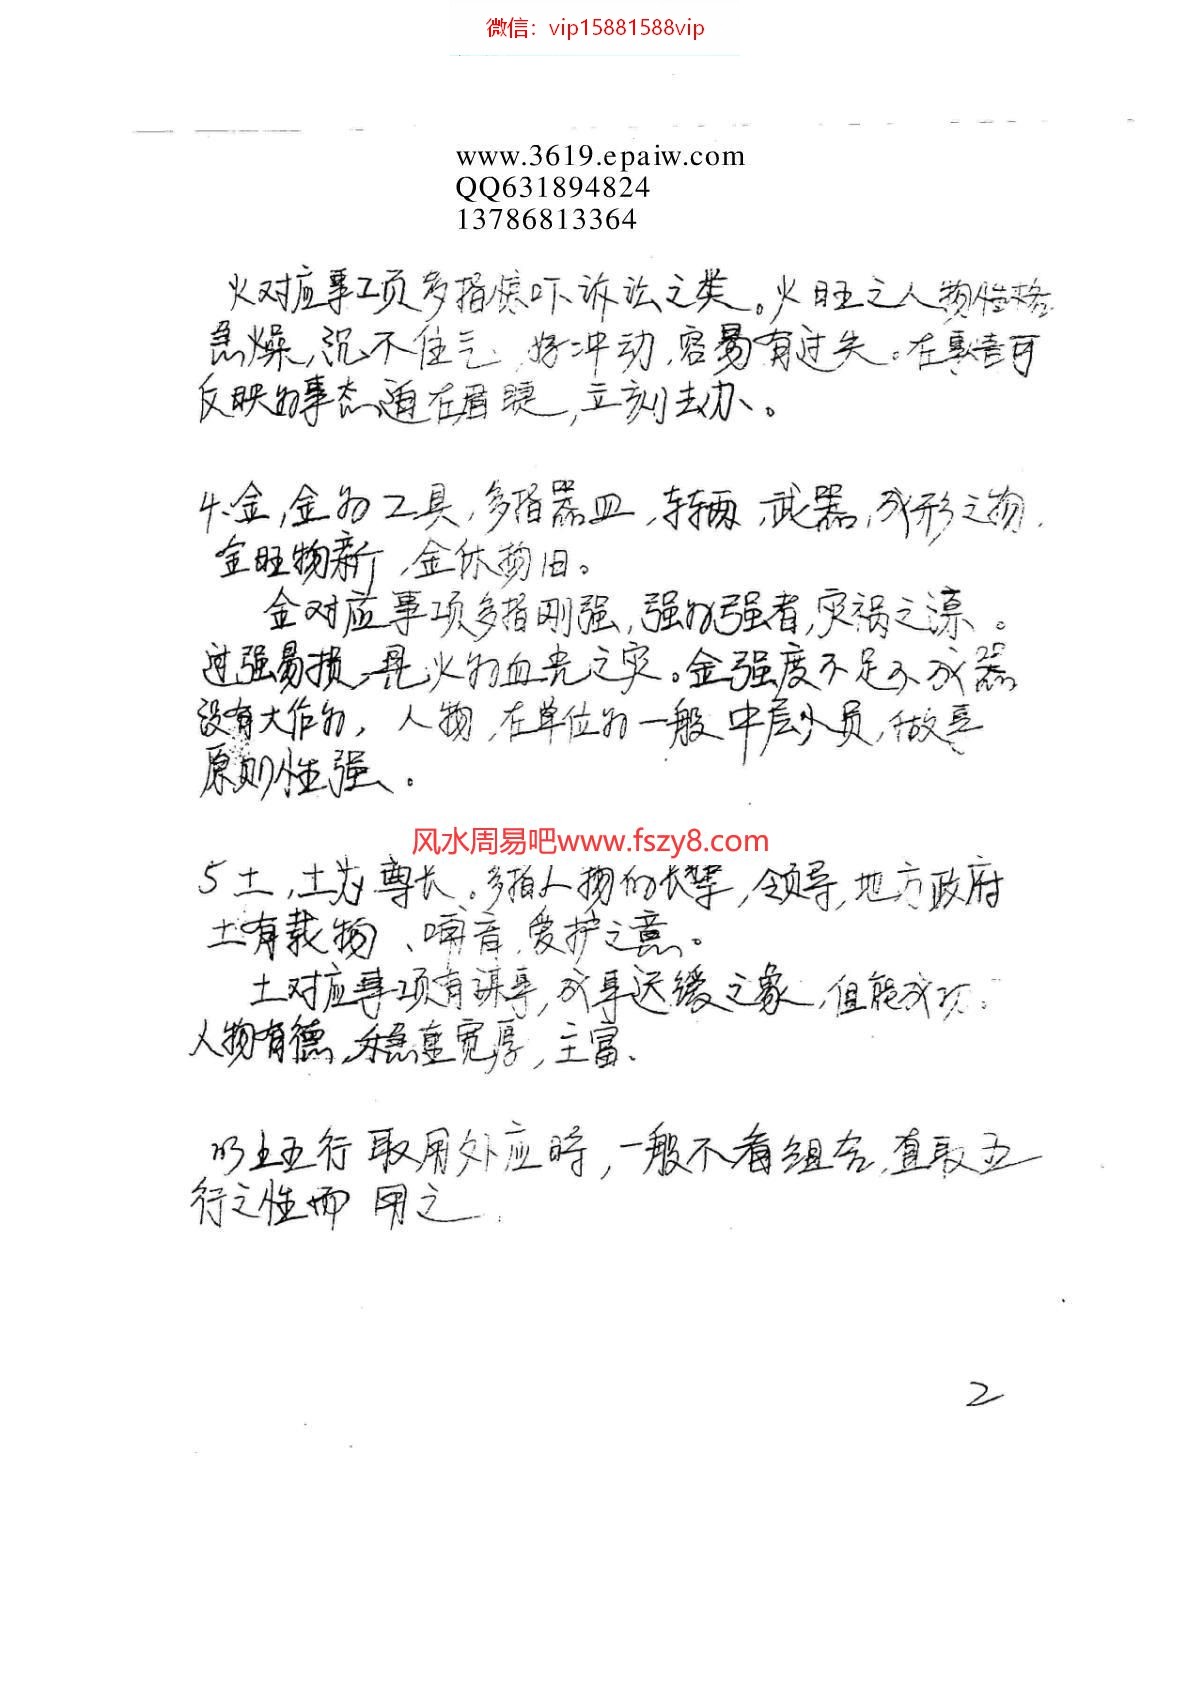 微信：vip15881588vip
www.3619.epaiw.com
QQ631894824
13786813364
火对应事项多指惊吓诉讼之类。火旺之人物性格
急燥，沉不住气，好冲动，容易有过失。在事情可
反映为事态迫在眉睫，立刻去办、。
4、金，金为工具，多指器皿，车辆，武器，成形之物，
金旺物新，金休物旧。
金对应事项多指刚强，强为强者，灾祸之源。
过强易损，见火为血光之灾。金强度不足不成器
没有大作为，人物，在单位为一般中层人员，做事
原则性强。
风水周易吧www.fszy8.com
5 土，土为尊长。多指人物的长辈，领导，地方政府
土有载物、哺育，爱护之意。
土对应事项有谋事，成事迟缓之象，但能成功。
人物有德，稳重宽厚，主富、
以上五行取用外应时，一般不看组合，直取五
行之性而用之
2